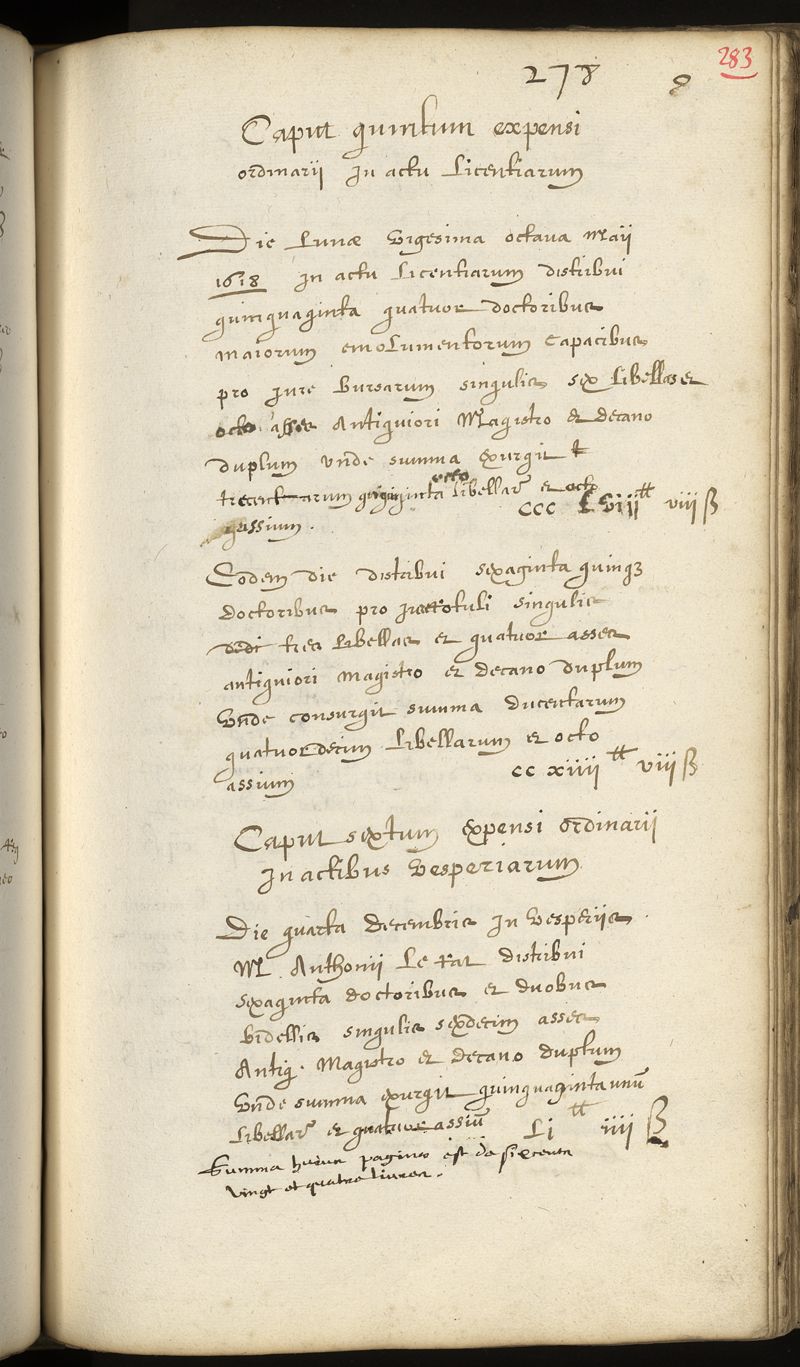 283
278
Caput quintum expensi
ordinarii In actu Licentiarum
Die Lunæ Vigesima octava Maii
1618 In actu Licentiarum distribui
quinquaginta quatuor doctoribus
maiorum emolumentorum capacibus
pro jure bursarum singulis sex libellas et
octo asses Antiquiori Magistro et decano
duplum Vnde summa exurgit t
octo
trecentarum quinquaginta libellar et octo
assium . CCC LViii tt viii ß
Eodem die distribui sexaginta quinq3
doctoribus pro singulis
dedi tres libellas et quatuor asses
antiquiori magistro et decano duplum
Vnde consurgit summa ducentarum
quatuordecim libellarum et octo
assium CC xiiii tt viii ß
Caput sextum expensi ordinarii
In actibus Vesperiarum
Die quarta decembris In Vesperiis .
M. Anthonii Le Rat distribui
sexaginta doctoribus et duobus
bidellis singulis sexdecim asses
Antiq. Magistro et decano duplum
Vnde summa exurgit quinquaginta unū
libellar et quatuor assiū Li tt iiii ß
Summa huius paginæ est de six cents
vingt et quatre livres .